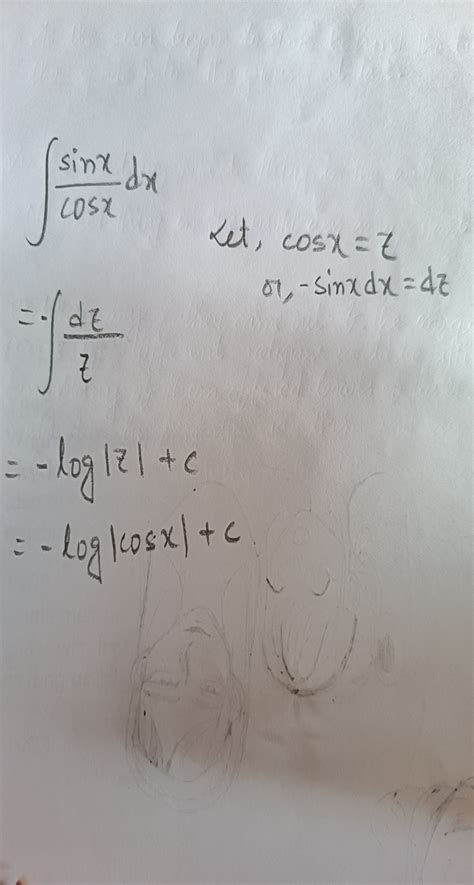 ∫ sinx/cosx dx
Let, cosx = z
or, -sinx dx = dz
= -∫ dz/z
= -log|z| + c
= -log|cosx| + c